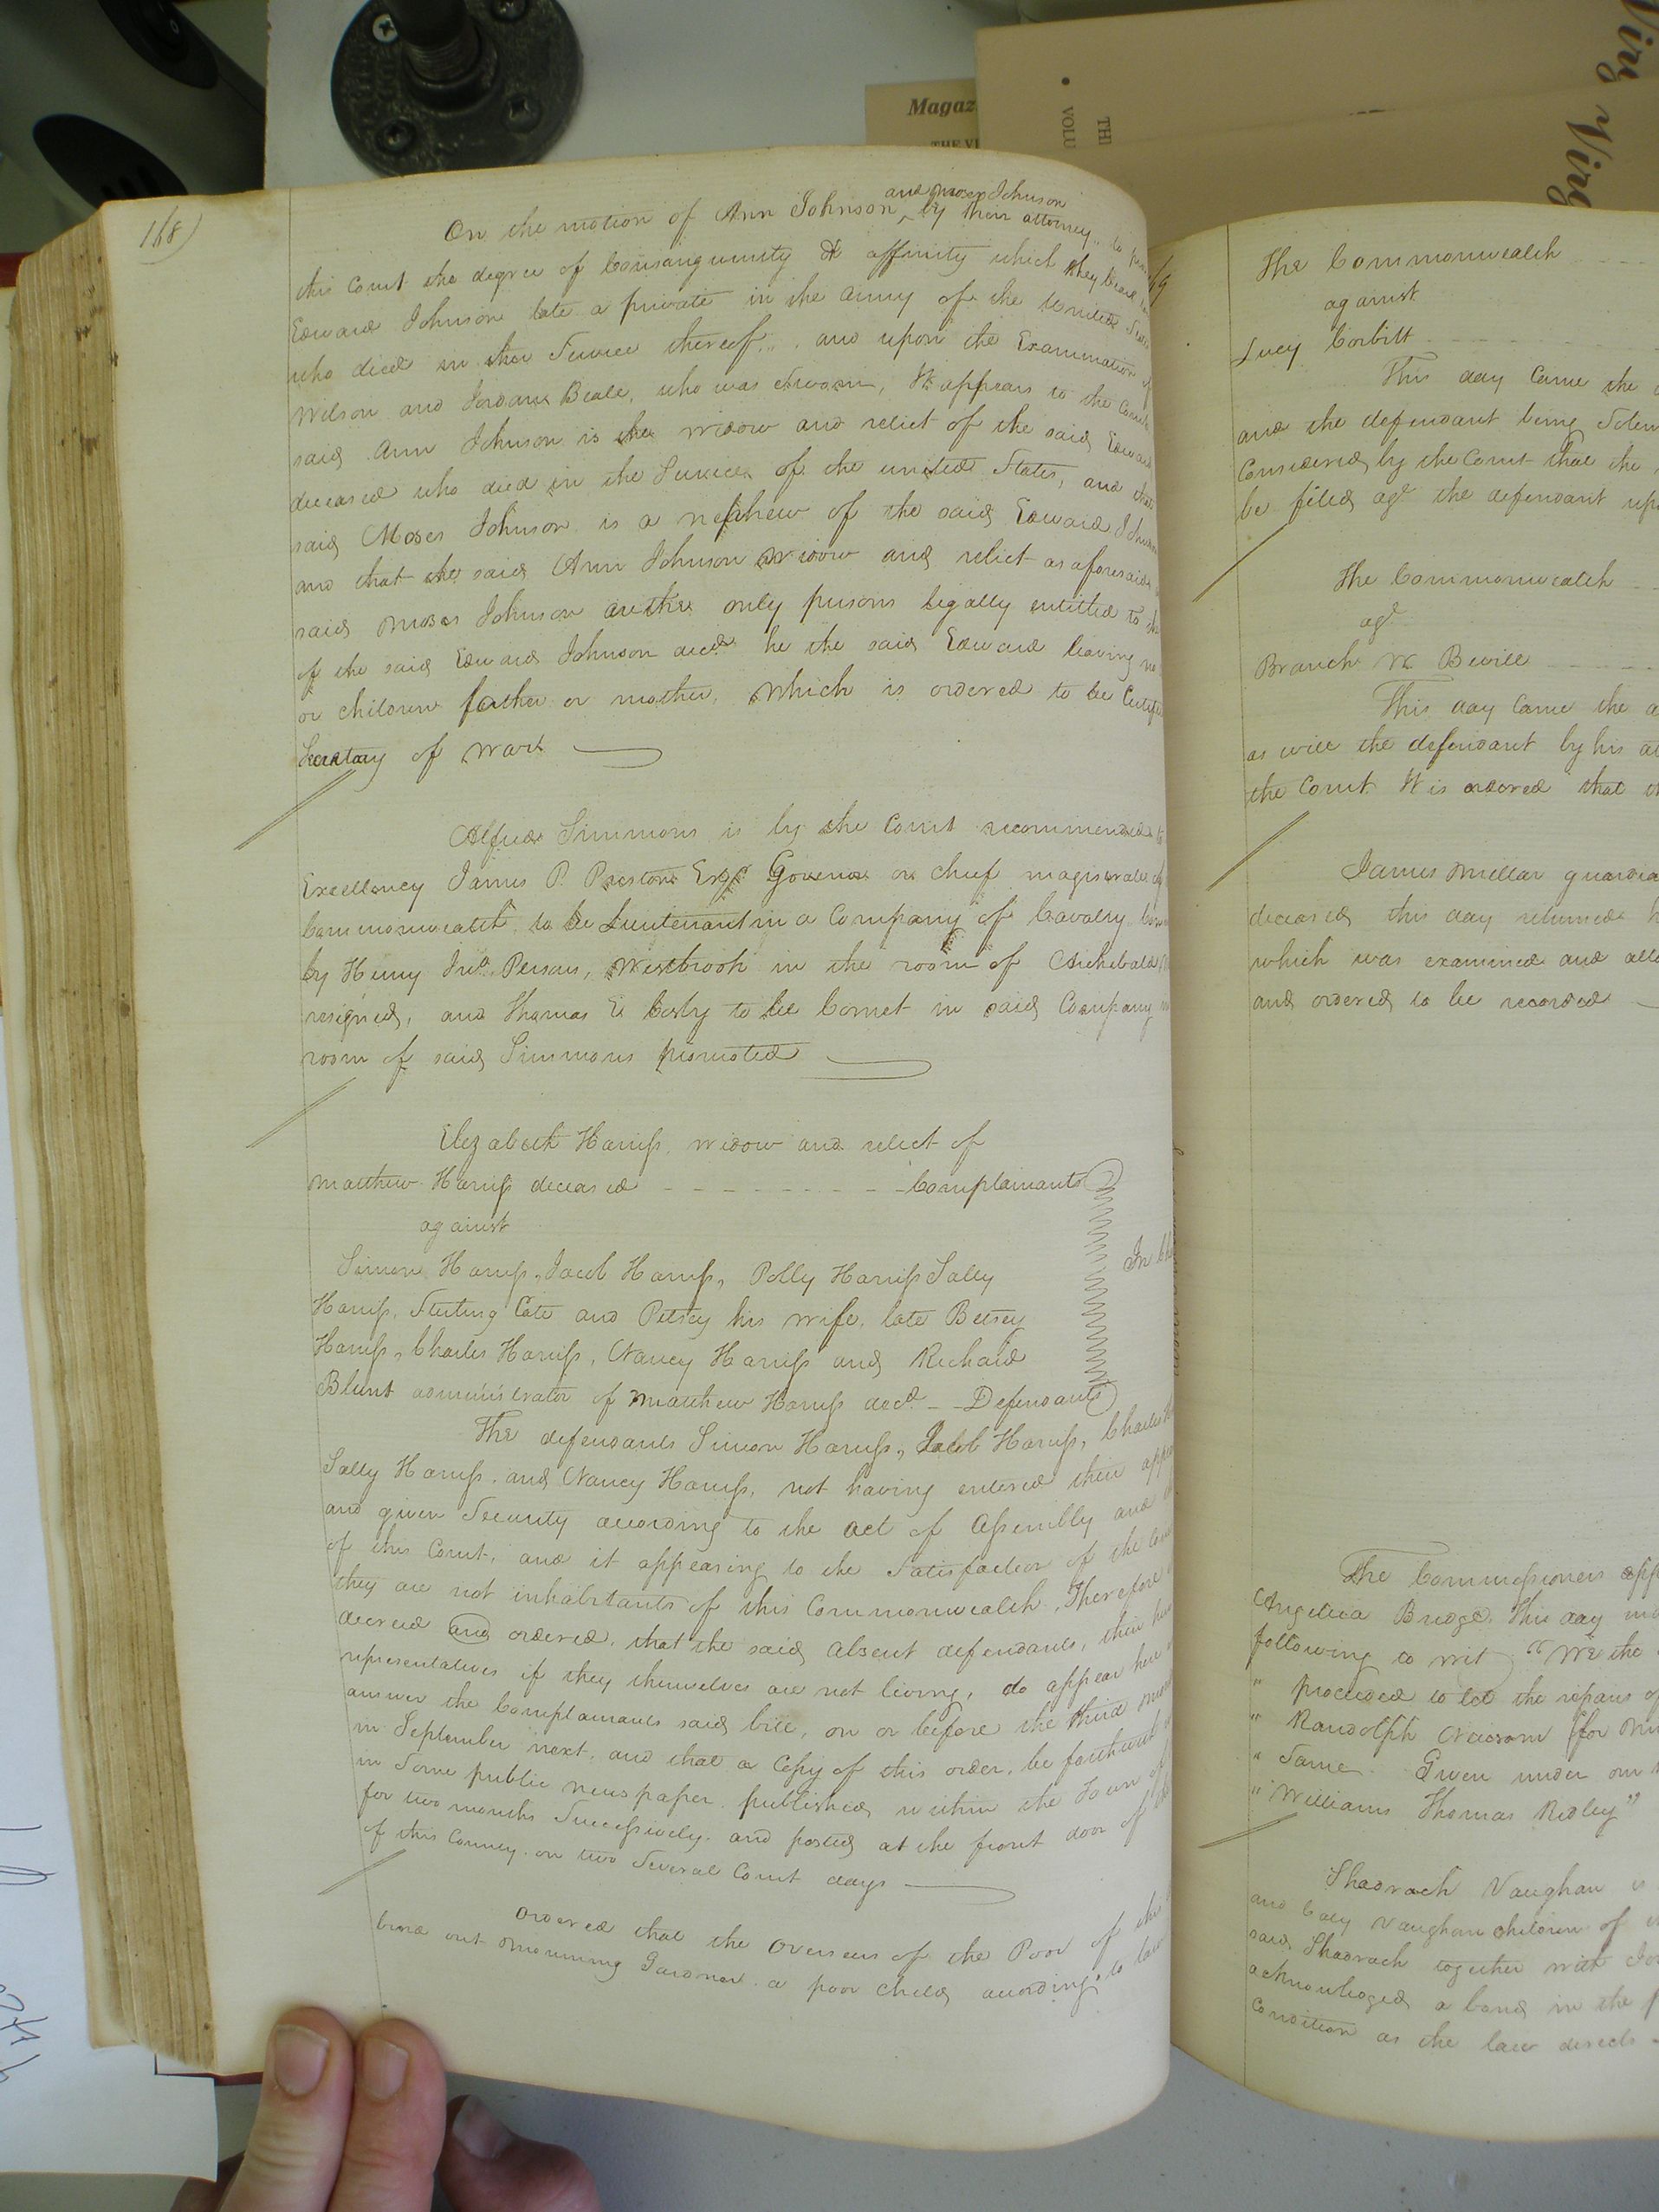 Magaz
THE VI
THE
VOLU
Virg
Virg
168)
and Moses Johnson
On the motion of Ann Johnson ^ by their attorney to
this Court the degree of Consanguinity & affinity which they bear
Edward Johnson late a private in the army of the United
who died in the Service thereof, and upon the Examination of
Wilson and Jordan Beale, who was sworn, It appears to the Court
said Ann Johnson is the widow and relict of the said Edward
deceased who died in the Service of the united States, and that
said Moses Johnson is a nephew of the said Edward
and that the said Ann Johnson widow and relict as aforesaid
said Moses Johnson are the only persons legally entitled to
of the said Edward Johnson decd he the said Edward leaving no
or children father or mother, which is ordered to be
Secretary of War
Alfred Simmons is by the Court recommended to
Excellency James P. Preston Esqr Governor or chief magistrate of
Commonwealth to be Lieutenant in a Company of Cavalry
by Henry Jno. Persons, Westbrook in the room of Archibald
resigned, and Thomas E Cosby to be Cornet in said Company
room of said Simmons promoted
Elizabeth Harriss, widow and relict of
Matthew Harriss deceased - - - - - - - - - Complainants
against
Simon Harriss, Jacob Harriss, Polly Harriss Sally
Harriss, Sterling Cate and Petsey his wife, late Betsey
Harriss, Charles Harriss, Nancy Harriss and Richard
Blunt administrator of Matthew Harriss decd. - - Defendants
In
The defendants Simon Harriss, Jacob Harriss, Charles
Sally Harriss and Nancy Harriss, not having entered their
and given Security according to the act of Assembly and
of this Court, and it appearing to the Satisfaction of the
they are not inhabitants of this Commonwealth, Therefore
decreed and ordered, that the said absent defendants, their
representatives if they themselves are not living, do appear here
answer the Complainants said bill, on or before the third
in September next, and that a Copy of this order, be forthwith
in Some public newspaper published within the Town of
for two months Successively and posted at the front door of
of this County on two Several Court days
Ordered that the Overseers of the Poor of this
bind out Mourning Gardner a poor child according to law
The Commonwealth - - - -
against
Lucy Corbitt - - - - - -
This day Came the
and the defendant being Solem
Considered by the Court that the
be filed agt the defendant
The Commonwealth - -
agt
Branch W Bevill - - - -
This day Came the
as will the defendant by his
the Court It is ordered that
James Millar
deceased this day returned
which was examined and
and ordered to be recorded
The Commissioners
Angelica Bridge, this day
following to wit "We the
" proceeded to let the repairs of
" Randolph Newsom for
" Same Given under our
" Williams Thomas Ridley"
Shadrach Vaughan is
and Caty Vaughan children of
said Shadrach together with
acknowledged a bond in the
Condition as the law directs